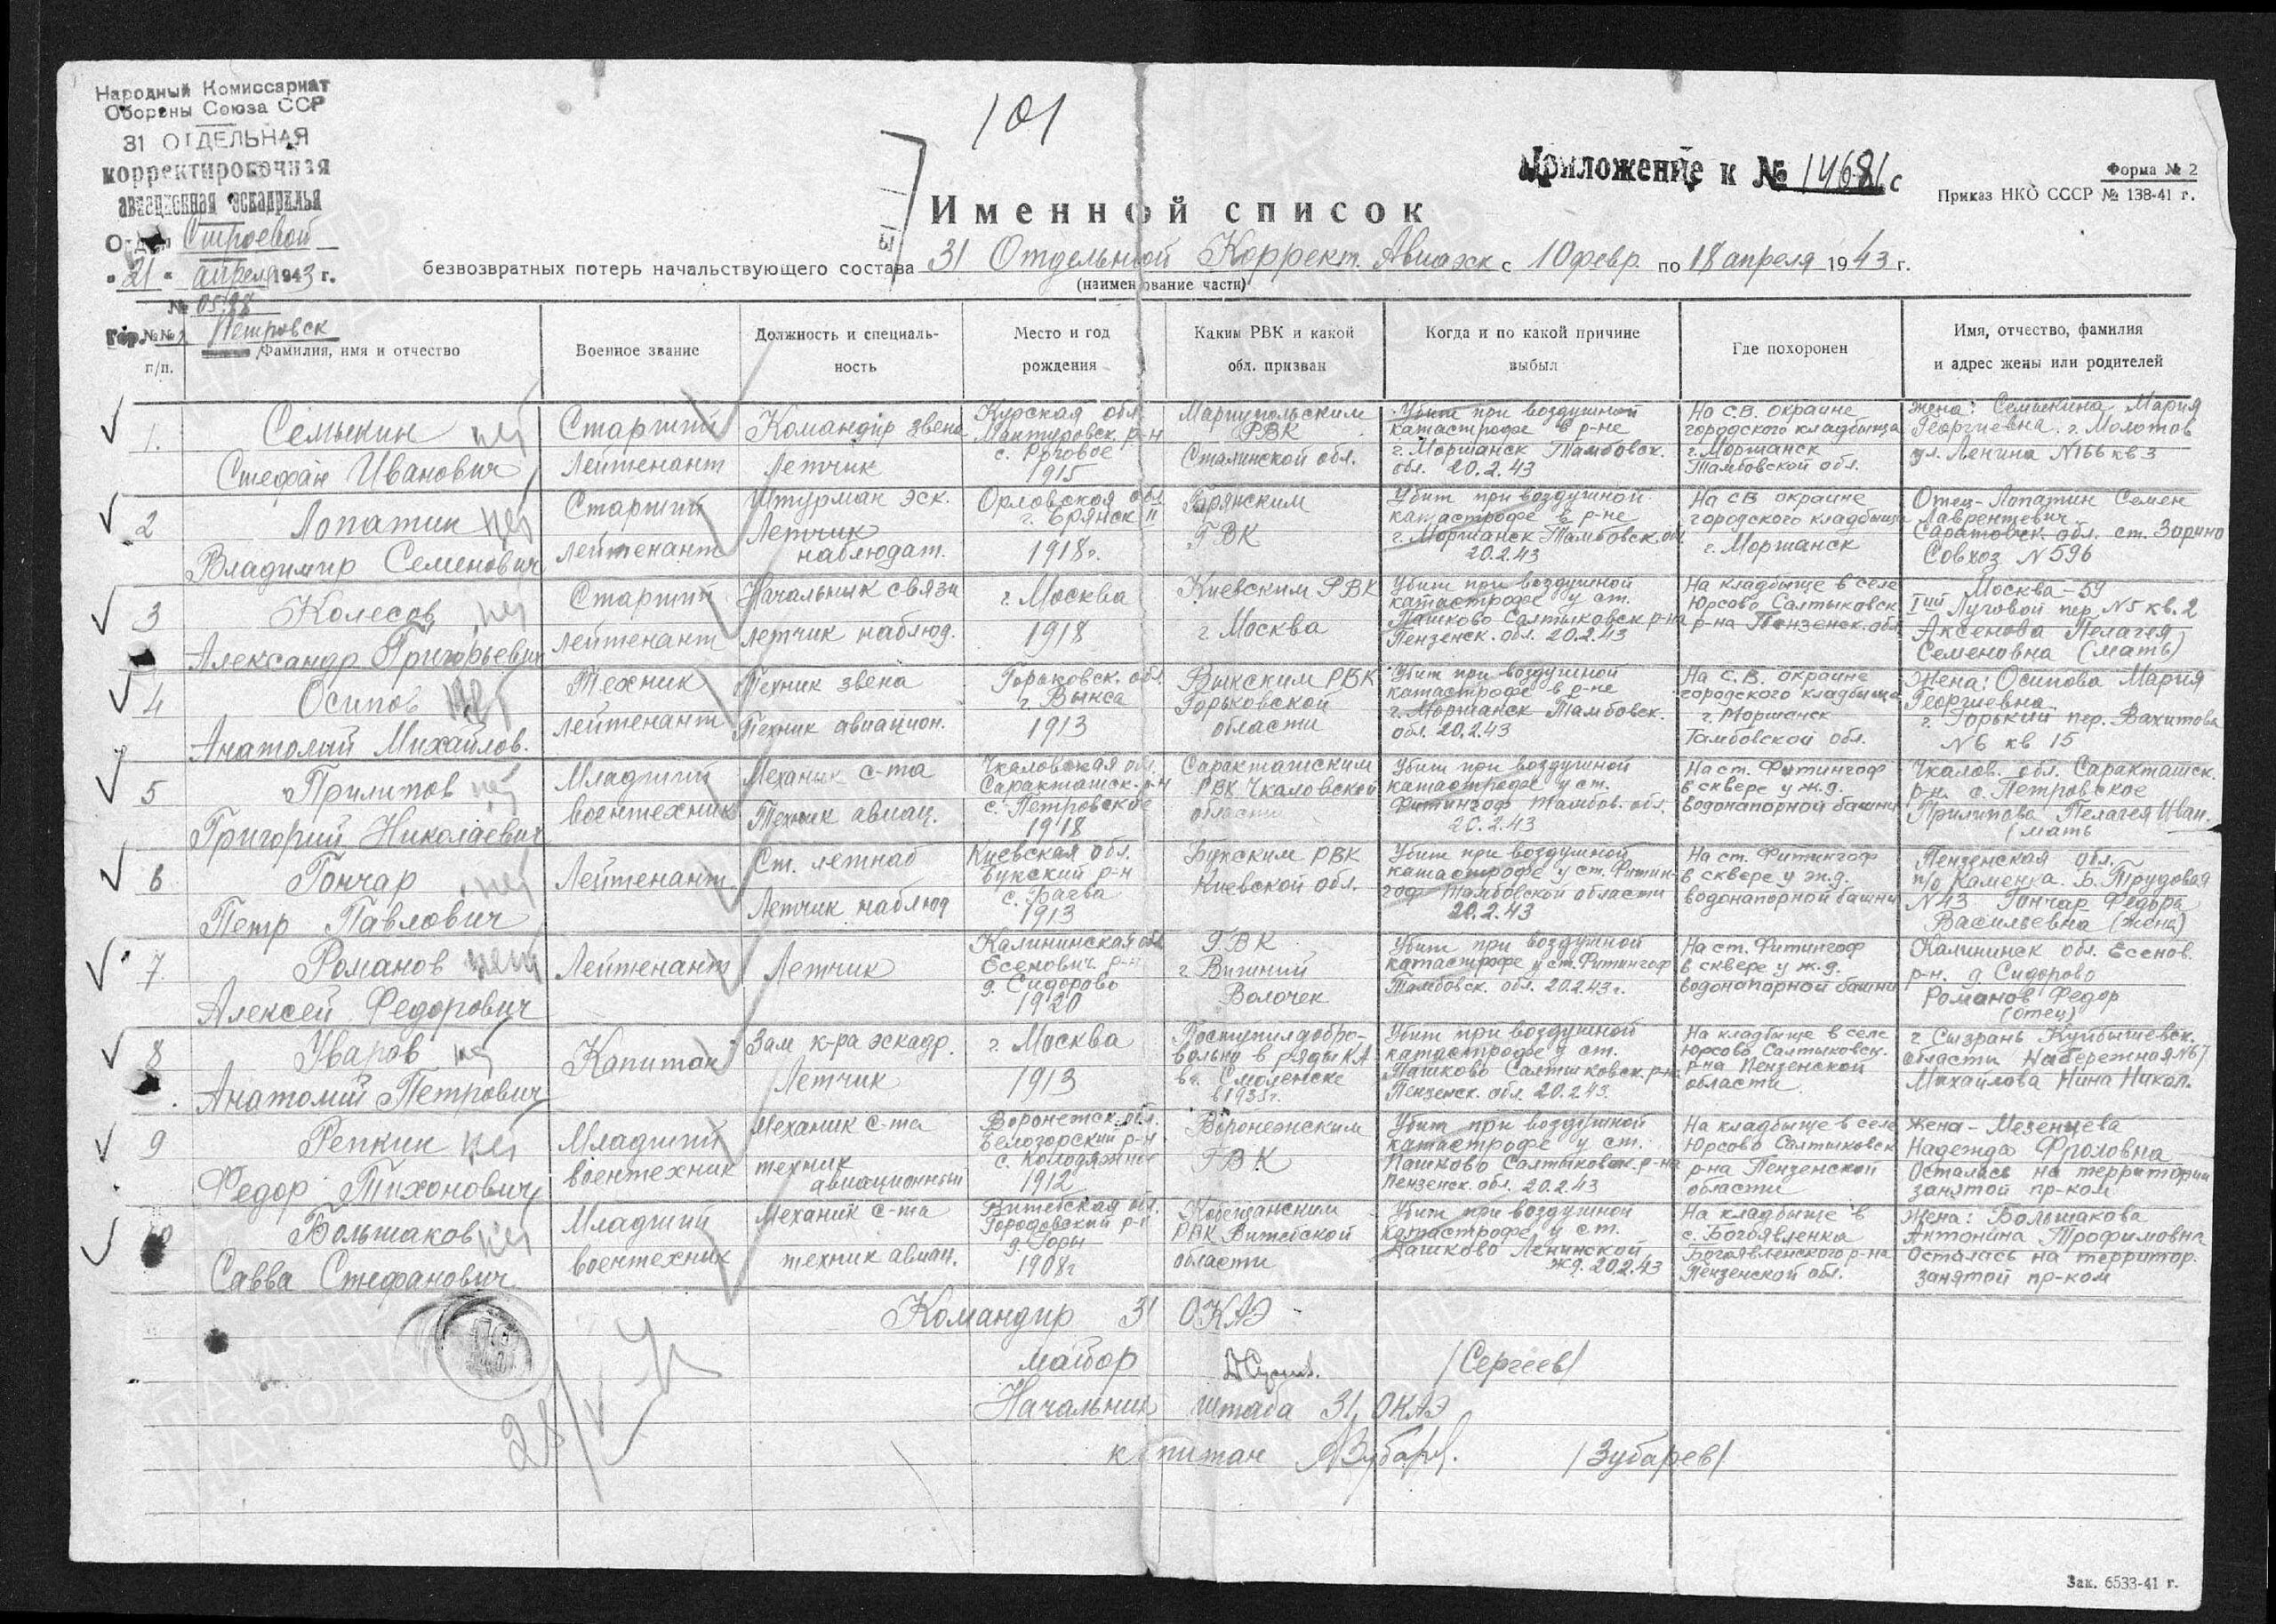 101
Народный Комиссариат
Обороны Союза ССР
31 ОТДЕЛЬНАЯ
корректировочная
авиационная эскадрилья
Отдел Строевой
"21" апреля 1943 г.
№ 0598
Гор. Петровск
Приложение к № 14681с
Форма № 2
Приказ НКО СССР № 138-41 г.
Именной список
безвозвратных потерь начальствующего состава 31 Отдельной Коррект. Авиаэск с 10 февр. по 18 апреля 1943 г.
(наименование части)
№№ п/п.
Фамилия, имя и отчество
Военное звание
Должность и специаль-
ность
Место и год
рождения
Каким РВК и какой
обл. призван
Когда и по какой причине
выбыл
Где похоронен
Имя, отчество, фамилия
и адрес жены или родителей
1.
Семыкин нет
Стефан Иванович
Старший
Лейтенант
Командир звена
Летчик
Курская обл.
Мантуровск. р-н
с. Роговое
1915
Мариупольским
РВК
Сталинской обл.
Убит при воздушной
катастрофе в р-не
г. Моршанск Тамбовск.
обл. 20.2.43
На С.В. окраине
городского кладбища
г. Моршанск
Тамбовской обл.
Жена: Семыкина Мария
Георгиевна. г. Молотов
ул. Ленина №166 кв 3
2
Лопатин нет
Владимир Семенович
Старший
лейтенант
Штурман эск.
Летчик
наблюдат.
Орловская обл.
г. Брянск II
1918г.
Брянским
ГВК
Убит при воздушной
катастрофе в р-не
г. Моршанск Тамбовск. обл
20.2.43
На СВ окраине
городского кладбища
г. Моршанск
Отец - Лопатин Семен
Лаврентьевич
Саратовск. обл. ст.
Совхоз №596
3
Колесов нет
Александр Григорьевич
Старший
лейтенант
Начальник связи
летчик наблюд.
г. Москва
1918
Киевским РВК
г Москва
Убит при воздушной
катастрофе у ст.
Пашково Салтыковск р-на
Пензенск. обл. 20.2.43
На кладбище в селе
Юрсово Салтыковск
р-на Пензенск. обл.
Москва - 59
Iый Луговой пер. №5 кв. 2
Аксенова Пелагея
Семеновна (мать)
4
Осипов нет
Анатолий Михайлов.
Техник
лейтенант
Техник звена
Техник авиацион.
Горьковск. обл.
г Выкса
1913
Выксским РВК
Горьковской
области
Убит при воздушной
катастрофе в р-не
г. Моршанск Тамбовск.
обл. 20.2.43
На С.В. окраине
городского кладбища
г. Моршанск
Тамбовской обл.
Жена: Осипова Мария
Георгиевна
г. Горький пер. Вахитова
№6 кв 15
5
Прилипов нет
Григорий Николаевич
Младший
воентехник
Механик с-та
Техник авиац.
Чкаловская обл.
Саракташск. р-н
с. Петровское
1918
Саракташским
РВК Чкаловской
области
Убит при воздушной
катастрофе у ст.
Фитингоф Тамбов. обл.
20.2.43
На ст. Фитингоф
в сквере у ж.д.
водонапорной башни
Чкалов. обл. Саракташск.
р-н. с. Петровское
Прилипова Пелагея Иван.
(мать
6
Гончар нет
Петр Павлович
Лейтенант
Ст. летнаб
Летчик наблюд
Киевская обл.
Букский р-н
с. Багва
1913
Букским РВК
Киевской обл.
Убит при воздушной
катастрофе у ст. Фитин-
гоф Тамбовской области
20.2.43
На ст. Фитингоф
в сквере у ж.д.
водонапорной башни
Пензенская обл.
п/о Каменка. Б. Трудовая
№43 Гончар Федора
Васильевна (жена)
7.
Романов нет
Алексей Федорович
Лейтенант
Летчик
Калининская обл
Есенович. р-н
д. Сидорово
1920
ГВК
г Вышний
Волочек
Убит при воздушной
катастрофе у ст. Фитингоф
Тамбовск. обл. 20.2.43г.
На ст. Фитингоф
в сквере у ж.д.
водонапорной башни
Калининск обл. Есенов.
р-н. д. Сидорово
Романов Федор
(отец)
8
Уваров нет
Анатолий Петрович
Капитан
Зам к-ра эскадр.
Летчик
г. Москва
1913
Поступил добро-
вольно в ряды КА
в г. Смоленске
в 193 г.
Убит при воздушной
катастрофе у ст.
Пашково Салтыковск. р-на
Пензенск. обл. 20.2.43.
На кладбище в селе
Юрсово Салтыковск.
р-на Пензенской
области
г Сызрань Куйбышевск.
области Набережная №67
Михайлова Нина Никол.
9
Репкин нет
Федор Тихонович
Младший
воентехник
Механик с-та
техник
авиационный
Воронежск. обл.
Белогорский р-н
с. Колодяжное
1912
Воронежским
ГВК
Убит при воздушной
катастрофе у ст.
Пашково Салтыковск. р-на
Пензенск. обл. 20.2.43
На кладбище в селе
Юрсово Салтыковск
р-на Пензенской
области
Жена - Мезенцева
Надежда Фроловна
Осталась на территории
занятой пр-ком
10
Большаков нет
Савва Стефанович
Младший
воентехник
Механик с-та
техник авиац.
Витебская обл.
Городовский р-н
д. Горы
1908г
РВК Витебской
области
Убит при воздушной
катастрофе у ст.
Пашково Ленинской
жд. 20.2.43
На кладбище в
с. Богоявленка
Богоявленского р-на
Пензенской обл.
Жена: Большакова
Антонина Трофимовна
Осталась на территор.
занятой пр-ком
Командир 31 ОКАЭ
майор /Сергеев/
Начальник штаба 31 ОКАЭ
капитан /Зубарев/
28/V
Зак. 6533-41 г.